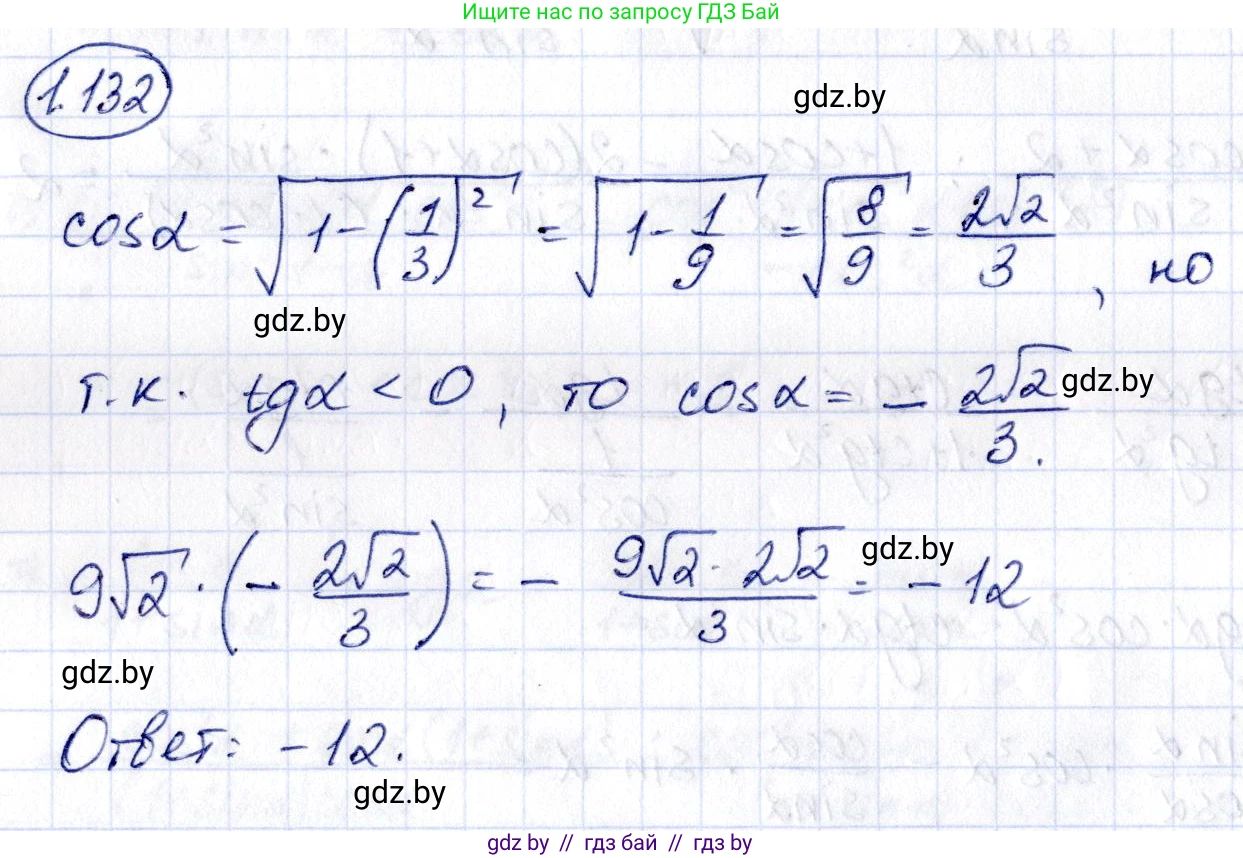 Ищите нас по запросу ГДЗ Бай
1.132
gdz.by
cosα = √(1 - (1/3)²) = √(1 - 1/9) = √(8/9) = 2√2/3, но
gdz.by
т.к. tgα < 0, то cosα = - 2√2/3.
gdz.by
9√2 · (- 2√2/3) = - 9√2 · 2√2/3 = - 12
gdz.by
gdz.by
Ответ: - 12.
gdz.by
gdz by // гдз бай // гдз by